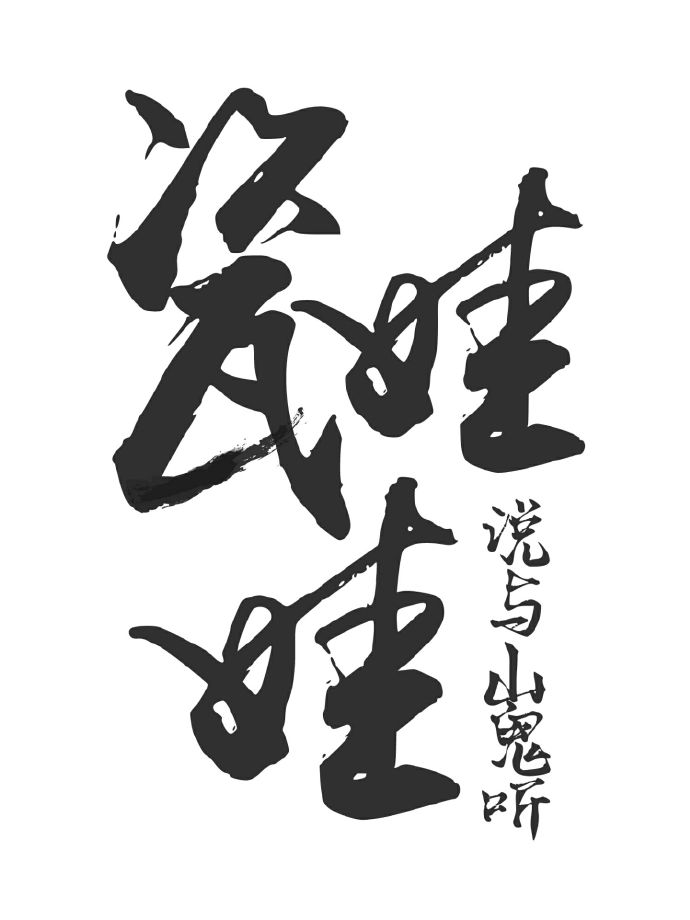 瓷娃娃
说与山鬼听